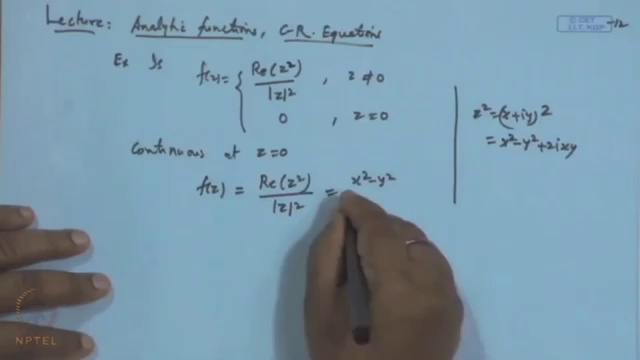 Lecture: Analytic functions, C-R. Equations
© CET
I.I.T. KGP
Ex Is f(z) = { Re(z²) / |z|² , z ≠ 0
0 , z = 0
Continuous at z = 0
f(z) = Re(z²) / |z|² = x² - y²
z² = (x + iy)2
= x² - y² + 2ixy
NPTEL